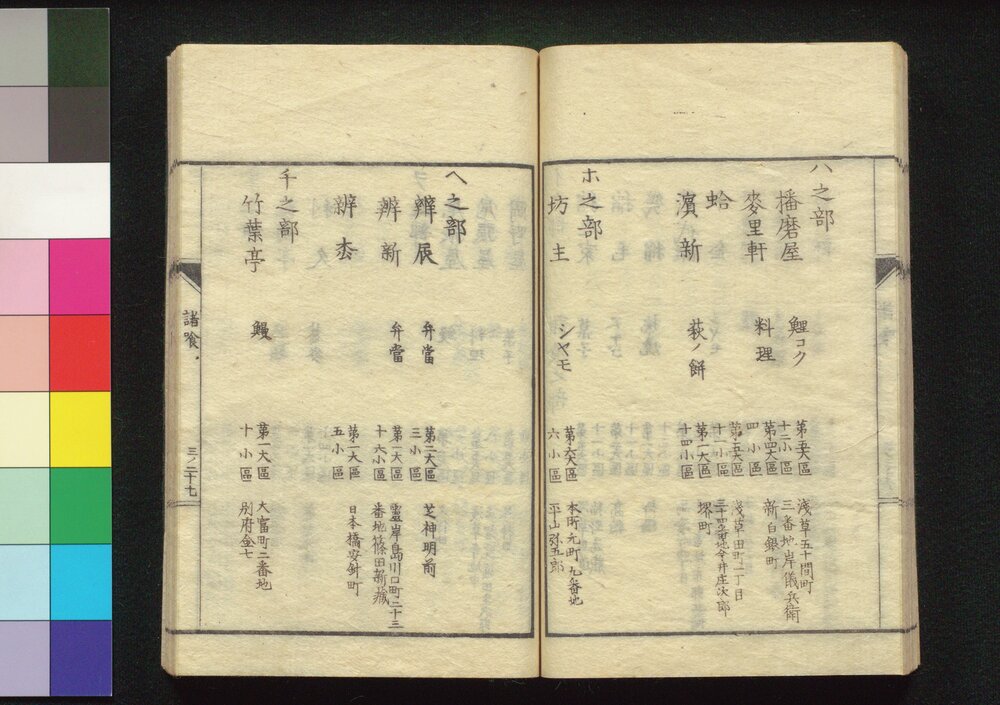 ハ之部
播磨屋 鯉コク 第五大區十二小區 浅草五十間町三番地岸儀兵衛
麥里軒 料理 第四大區四小區 新白銀町
蛤 第五大區十一小區 浅草田町二丁目三十四番地今井庄次郎
濱新 萩ノ餅 第一大區十四小區 堺町
ホ之部
坊主 シヤモ 第六大區六小區 本所元町九番地平山弥五郎
ヘ之部
辨辰 弁當 第二大區三小區 芝神明前
辨新 弁當 第一大區十六小區 靈岸島川口町二十三番地篠田新藏
辨杢 第一大區五小區 日本橋安針町
千之部
竹葉亭 鰻 第一大區十小區 大富町二番地別府金七
諸喰
三ノ二十七